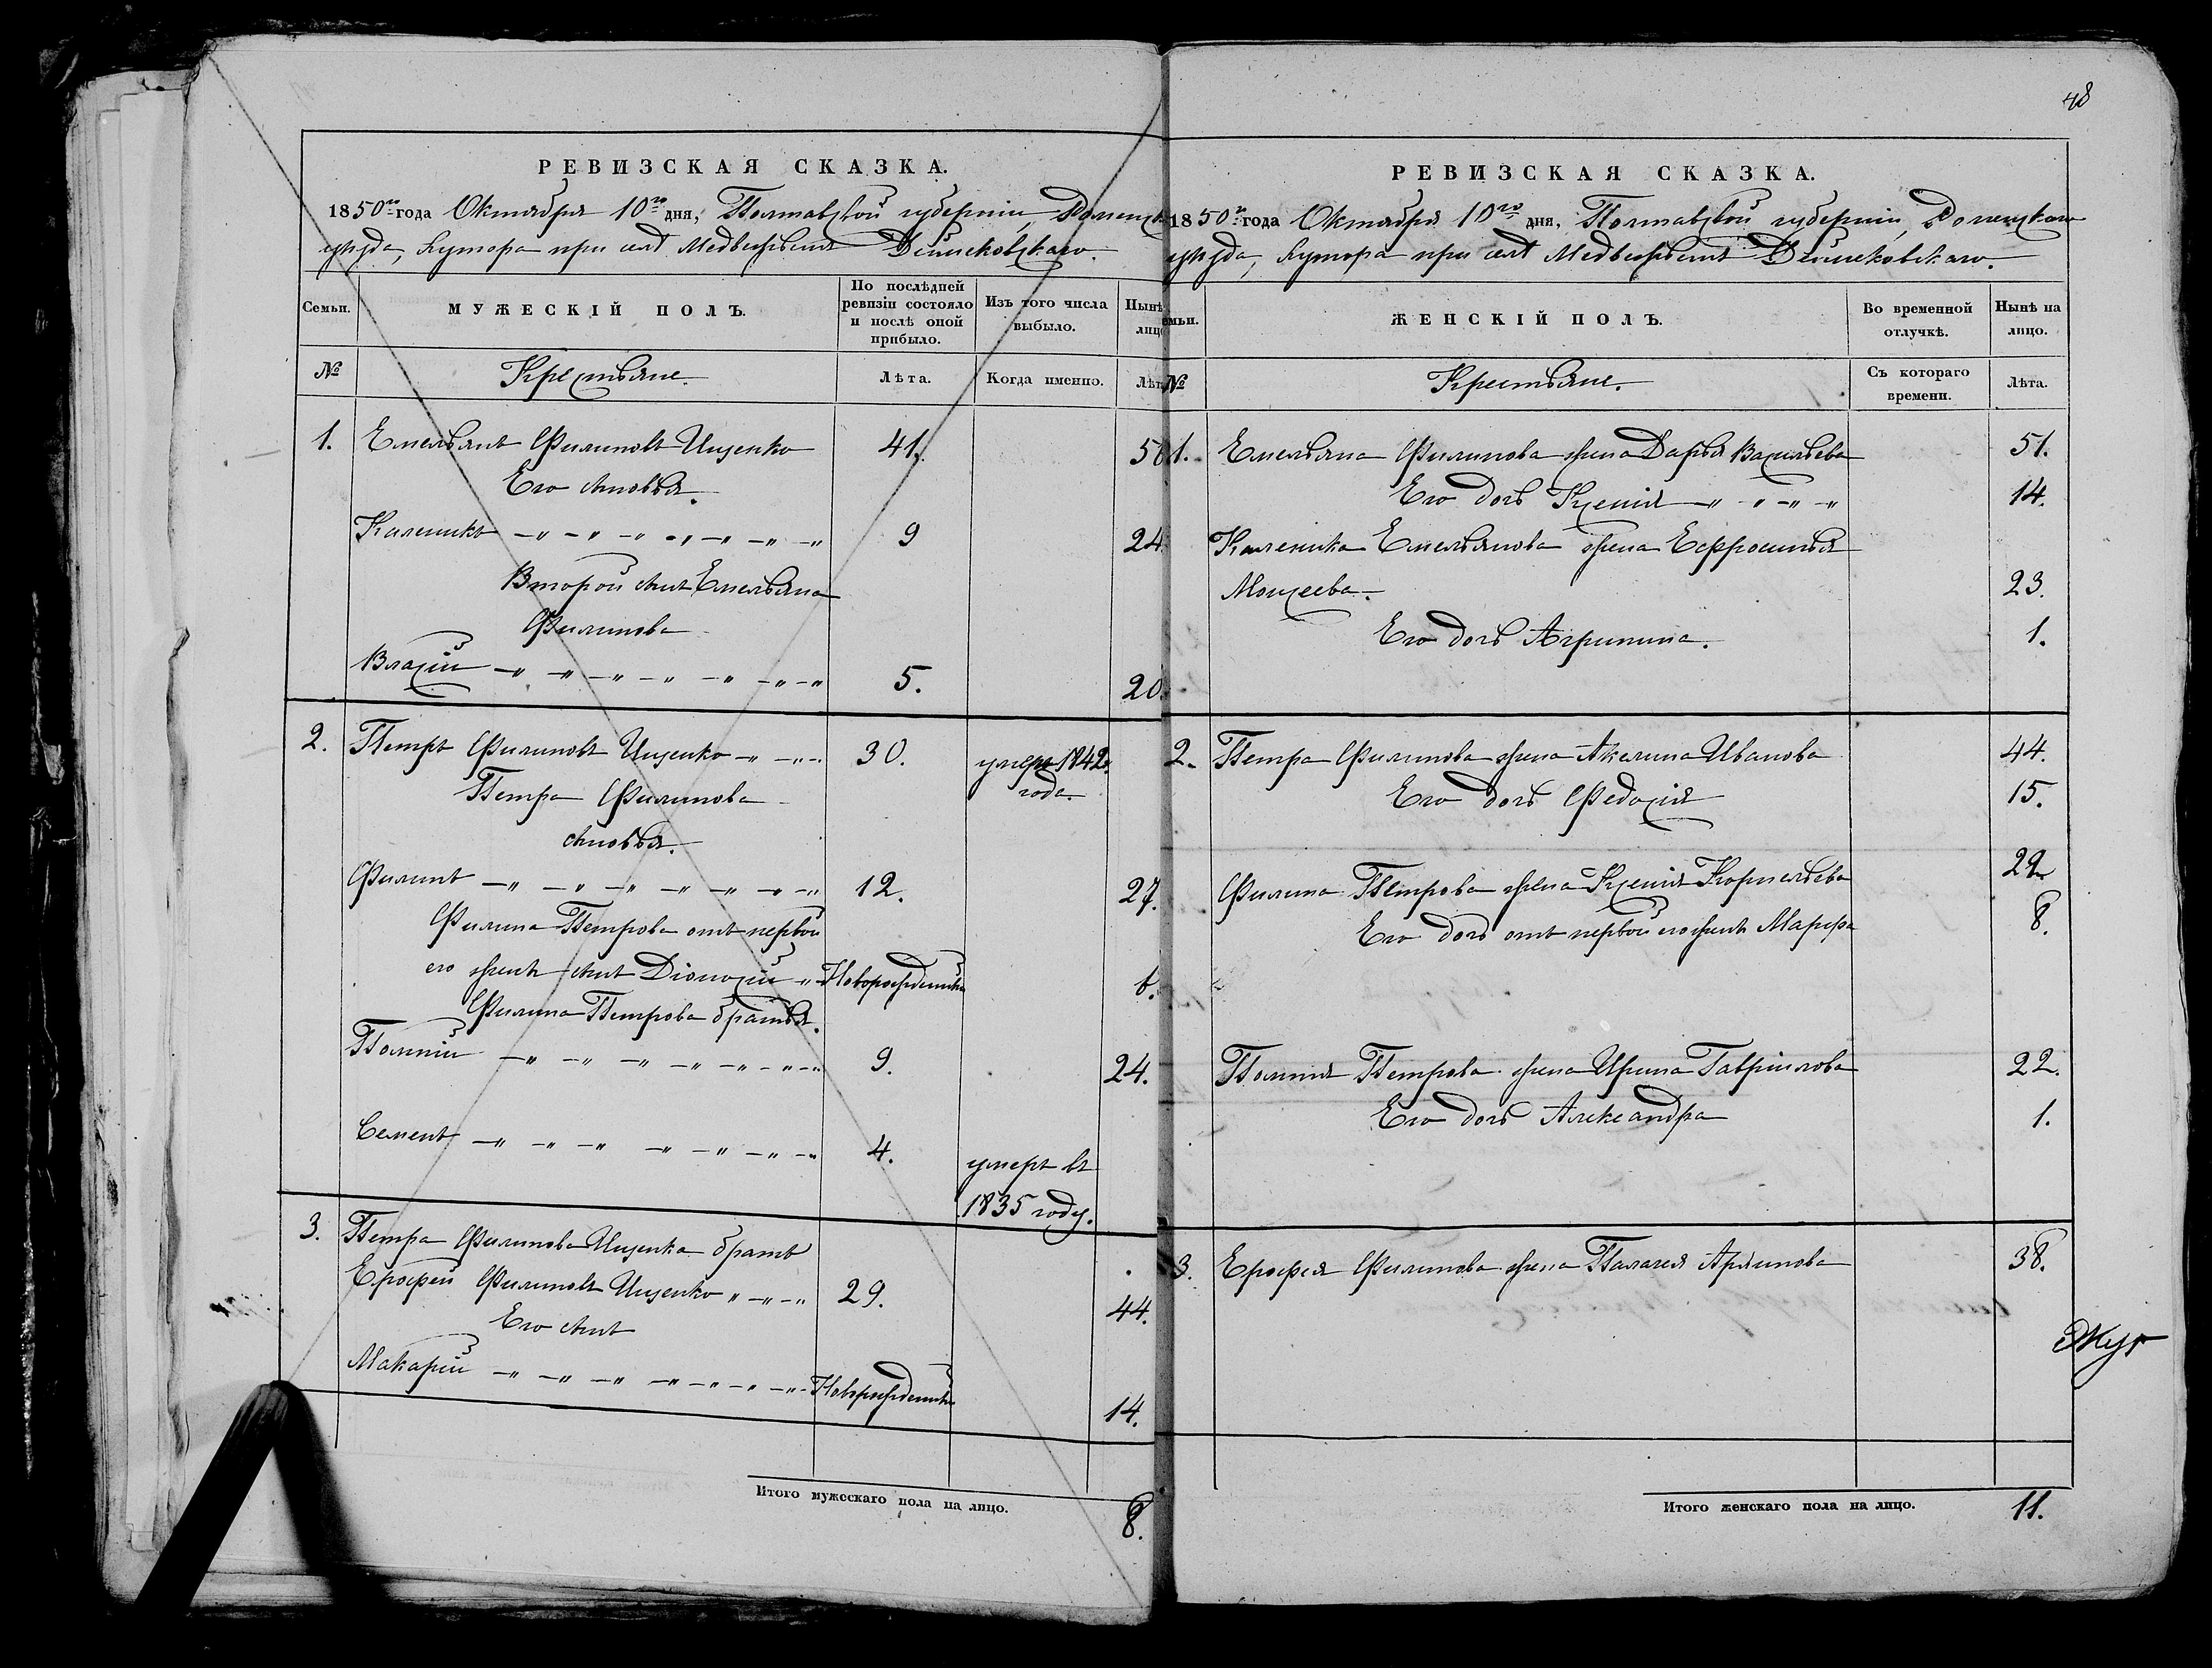 48
РЕВИЗСКАЯ СКАЗКА.
1850го года Октября 10го дня, Полтавской губерніи, Роменска
уѣзда, хутора при селѣ Медвежьемъ Дейнековскаго.
Семьи. МУЖЕСКІЙ ПОЛЪ. По послѣдней ревизіи состояло и послѣ оной прибыло. Изъ того числа выбыло. Нынѣ лицо
№ Крестьяне. Лѣта. Когда именно. Лѣт
1. Емельянъ Филиповъ Ищенко 41. 56
Его сыновья.
Каленикъ —"—"—"—"—"—"—" 9 24.
Второй сынъ Емельяна
Филипова
Власій —"—"—"—"—"—"—" 5. 20.
2. Петръ Филиповъ Ищенко —"—"— 30. умеръ 1842.
года.
Петра Филипова
сыновья.
Филипъ —"—"—"—"—"—"—" 12. 27.
Филипа Петрова отъ первой
его жены сынъ Діонисій " Новорожденный 6.
Филипа Петрова братья.
Полтій —"—"—"—"—"—"—" 9. 24.
Семенъ —"—"—"—"—"—"—" 4. умеръ въ
1835 году.
3. Петра Филипова Ищенка братъ
Ерофей Филиповъ Ищенко "—"—" 29. 44.
Его сынъ
Макарій —"—"—"—"—"—"—" Новорожденный 14.
Итого мужескаго пола на лицо. 8.
РЕВИЗСКАЯ СКАЗКА.
1850го года Октября 10го дня, Полтавской губерніи, Роменскаго
уѣзда, хутора при селѣ Медвежьемъ Дейнековскаго.
емьи. ЖЕНСКІЙ ПОЛЪ. Во временной отлучкѣ. Нынѣ на лицо.
№ Крестьяне. Съ котораго времени. Лѣта.
1. Емельяна Филипова жена Дарья Васильева 51.
Его дочь Ксенія —"—"—"—" 14.
Каленика Емельянова жена Ефросинья
Моисеева. 23.
Его дочь Агрипина. 1.
2. Петра Филипова жена Акелина Иванова 44.
Его дочь Федосія 15.
Филипа Петрова жена Ксенія Корнельева 22
Его дочь отъ первой его жены Марфа 8.
Полтія Петрова жена Ирина Гавріилова 22.
Его дочь Александра 1.
3. Ерофея Филипова жена Палагея Архипова 38.
Жур
Итого женскаго пола на лицо. 11.